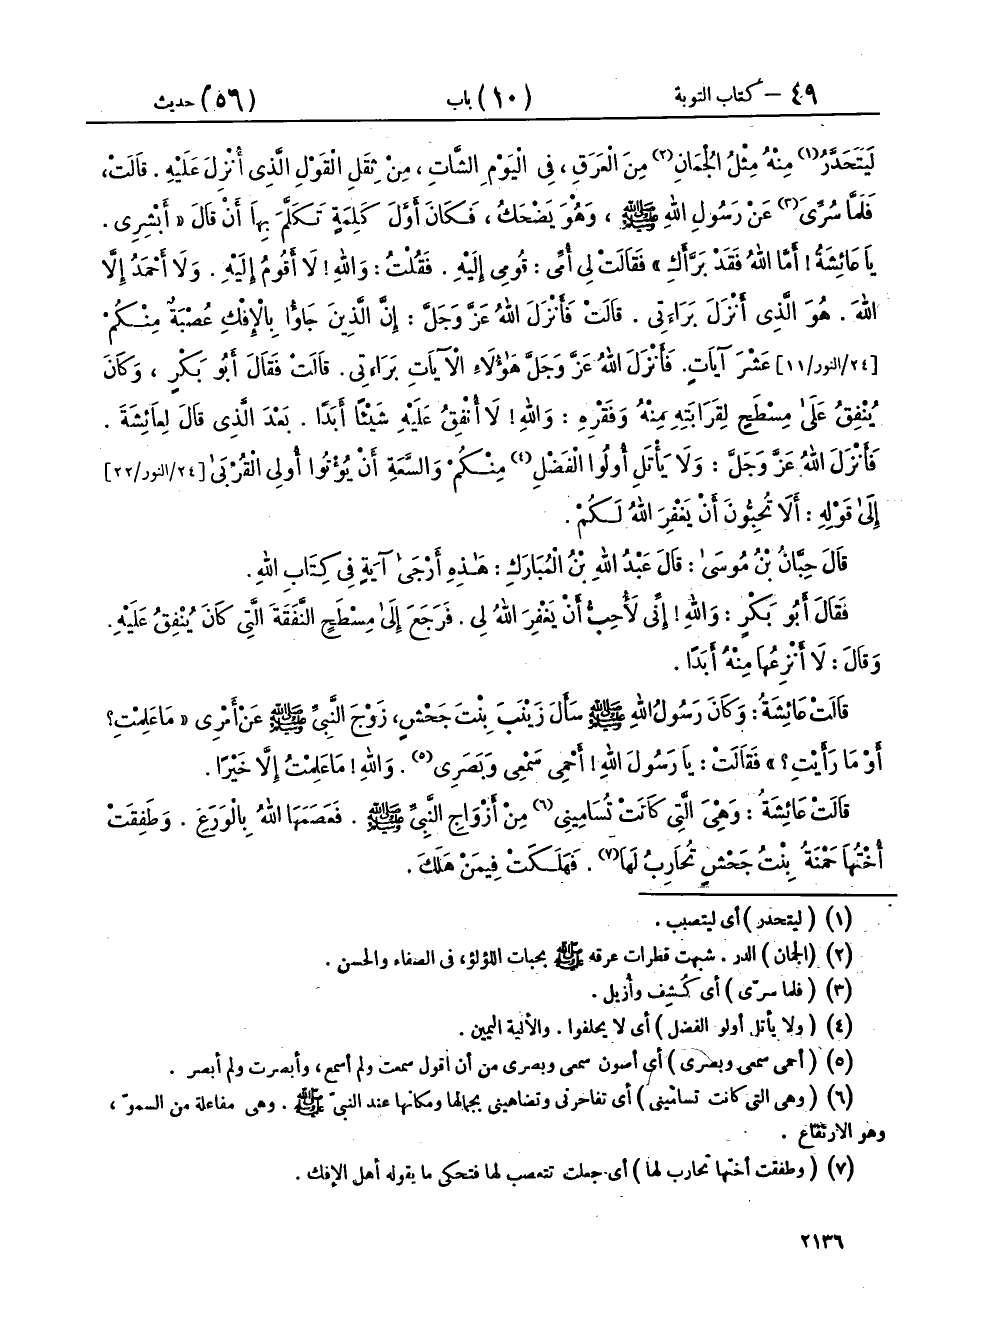 ٤٩ – كتاب التوبة (١٠) باب (٥٦) حديث
لَيَتَحَدَّرُ(١) مِنْهُ مِثْلُ الْجُمَانِ(٢) مِنَ الْعَرَقِ، فِى الْيَوْمِ الشَّاتِ، مِنْ ثِقَلِ الْقَوْلِ الَّذِى أُنْزِلَ عَلَيْهِ. قَالَتْ،
فَلَمَّا سُرِّىَ(٣) عَنْ رَسُولِ اللهِ ﷺ، وَهُوَ يَضْحَكُ، فَكَانَ أَوَّلَ كَلِمَةٍ تَكَلَّمَ بِهَا أَنْ قَالَ « أَبْشِرِى.
يَا عَائِشَةُ! أَمَّا اللهُ فَقَدْ بَرَّأَكِ » فَقَالَتْ لِى أُمِّى: قُومِى إِلَيْهِ. فَقُلْتُ: وَاللهِ! لَا أَقُومُ إِلَيْهِ. وَلَا أَحْمَدُ إِلَّا
اللهَ. هُوَ الَّذِى أَنْزَلَ بَرَاءَتِى. قَالَتْ فَأَنْزَلَ اللهُ عَزَّ وَجَلَّ: إِنَّ الَّذِينَ جَاؤُا بِالْإِفْكِ عُصْبَةٌ مِنْكُمْ
[٢٤/النور/١١] عَشْرَ آيَاتٍ. فَأَنْزَلَ اللهُ عَزَّ وَجَلَّ هَؤُلَاءِ الْآيَاتِ بَرَاءَتِى. قَالَتْ فَقَالَ أَبُو بَكْرٍ، وَكَانَ
يُنْفِقُ عَلَىٰ مِسْطَحٍ لِقَرَابَتِهِ مِنْهُ وَفَقْرِهِ: وَاللهِ! لَا أُنْفِقُ عَلَيْهِ شَيْئًا أَبَدًا. بَعْدَ الَّذِى قَالَ لِعَائِشَةَ.
فَأَنْزَلَ اللهُ عَزَّ وَجَلَّ: وَلَا يَأْتَلِ أُولُوا الْفَضْلِ(٤) مِنْكُمْ وَالسَّعَةِ أَنْ يُؤْتُوا أُولِى الْقُرْبَىٰ [٢٤/النور/٢٢]
إِلَىٰ قَوْلِهِ: أَلَا تُحِبُّونَ أَنْ يَغْفِرَ اللهُ لَكُمْ.
قَالَ حِبَّانُ بْنُ مُوسَىٰ: قَالَ عَبْدُ اللهِ بْنُ الْمُبَارَكِ: هَٰذِهِ أَرْجَىٰ آيَةٍ فِى كِتَابِ اللهِ.
فَقَالَ أَبُو بَكْرٍ: وَاللهِ! إِنِّى لَأُحِبُّ أَنْ يَغْفِرَ اللهُ لِى. فَرَجَعَ إِلَىٰ مِسْطَحٍ النَّفَقَةَ الَّتِى كَانَ يُنْفِقُ عَلَيْهِ.
وَقَالَ: لَا أَنْزِعُهَا مِنْهُ أَبَدًا.
قَالَتْ عَائِشَةُ: وَكَانَ رَسُولُ اللهِ ﷺ سَأَلَ زَيْنَبَ بِنْتَ جَحْشٍ، زَوْجَ النَّبِىِّ ﷺ عَنْ أَمْرِى « مَا عَلِمْتِ؟
أَوْ مَا رَأَيْتِ؟ » فَقَالَتْ: يَا رَسُولَ اللهِ! أَحْمِى سَمْعِى وَبَصَرِى(٥). وَاللهِ! مَا عَلِمْتُ إِلَّا خَيْرًا.
قَالَتْ عَائِشَةُ: وَهِىَ الَّتِى كَانَتْ تُسَامِينِى(٦) مِنْ أَزْوَاجِ النَّبِىِّ ﷺ. فَعَصَمَهَا اللهُ بِالْوَرَعِ. وَطَفِقَتْ
أُخْتُهَا حَمْنَةُ بِنْتُ جَحْشٍ تُحَارِبُ لَهَا(٧). فَهَلَكَتْ فِيمَنْ هَلَكَ.
(١) (ليتحدر) أى ليتصبب.
(٢) (الجمان) الدر. شبهت قطرات عرقه ﷺ بحبات اللؤلؤ، فى الصفاء والحسن.
(٣) (فلما سرّى) أى كُشِف وأزيل.
(٤) (ولا يأتل أولو الفضل) أى لا يحلفوا. والألية اليمين.
(٥) (أحمى سمعى وبصرى) أى أصون سمعى وبصرى من أن أقول سمعت ولم أسمع، وأبصرت ولم أبصر.
(٦) (وهى التى كانت تسامينى) أى تفاخرنى وتضاهينى بجمالها ومكانها عند النبىّ ﷺ. وهى مفاعلة من السموّ،
وهو الارتفاع.
(٧) (وطفقت أختها تحارب لها) أى جعلت تتعصب لها فتحكى ما يقوله أهل الإفك.
٢١٣٦